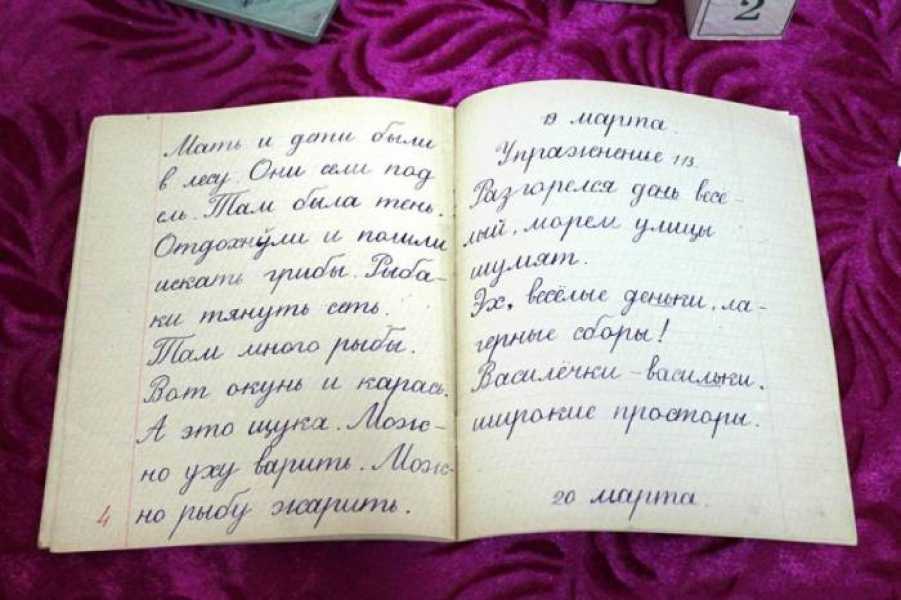 Мать и дети были
в лесу. Они сели под
ель. Там была тень.
Отдохнули и пошли
искать грибы. Рыба-
ки тянуть сеть.
Там много рыбы.
Вот окунь и карась.
А это щука. Мож-
но уху варить. Мож-
но рыбу жарить.
4
19 марта.
Упражнение 113.
Разгорелся день весе-
лый, морем улицы
шумят.
Эх, весёлые деньки, ла-
герные сборы!
Василёчки - васильки,
широкие просторы.
20 марта.
2